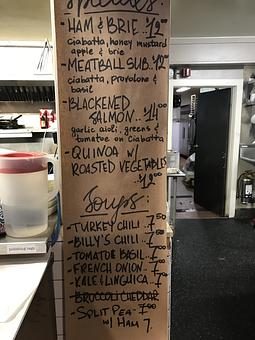 Specials:
-HAM & BRIE..$12⁰⁰
ciabatta, honey mustard
apple & brie
-MEATBALL SUB.$12⁰⁰
ciabatta, provolone &
basil
-BLACKENED
SALMON..$14⁰⁰
garlic aioli, greens &
tomato on ciabatta
-QUINOA W/
ROASTED VEGETABLES
$12⁰⁰
Soups:
-TURKEY CHILI.7⁵⁰
-BILLY'S CHILI..7⁵⁰
-TOMATO BASIL..7⁰⁰
-FRENCH ONION..7⁰⁰
-KALE & LINGUICA..7⁰⁰
-BROCCOLI CHEDDAR
-SPLIT PEA-7⁰⁰
W/ HAM 7.